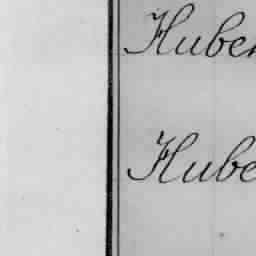 Huber
Hube